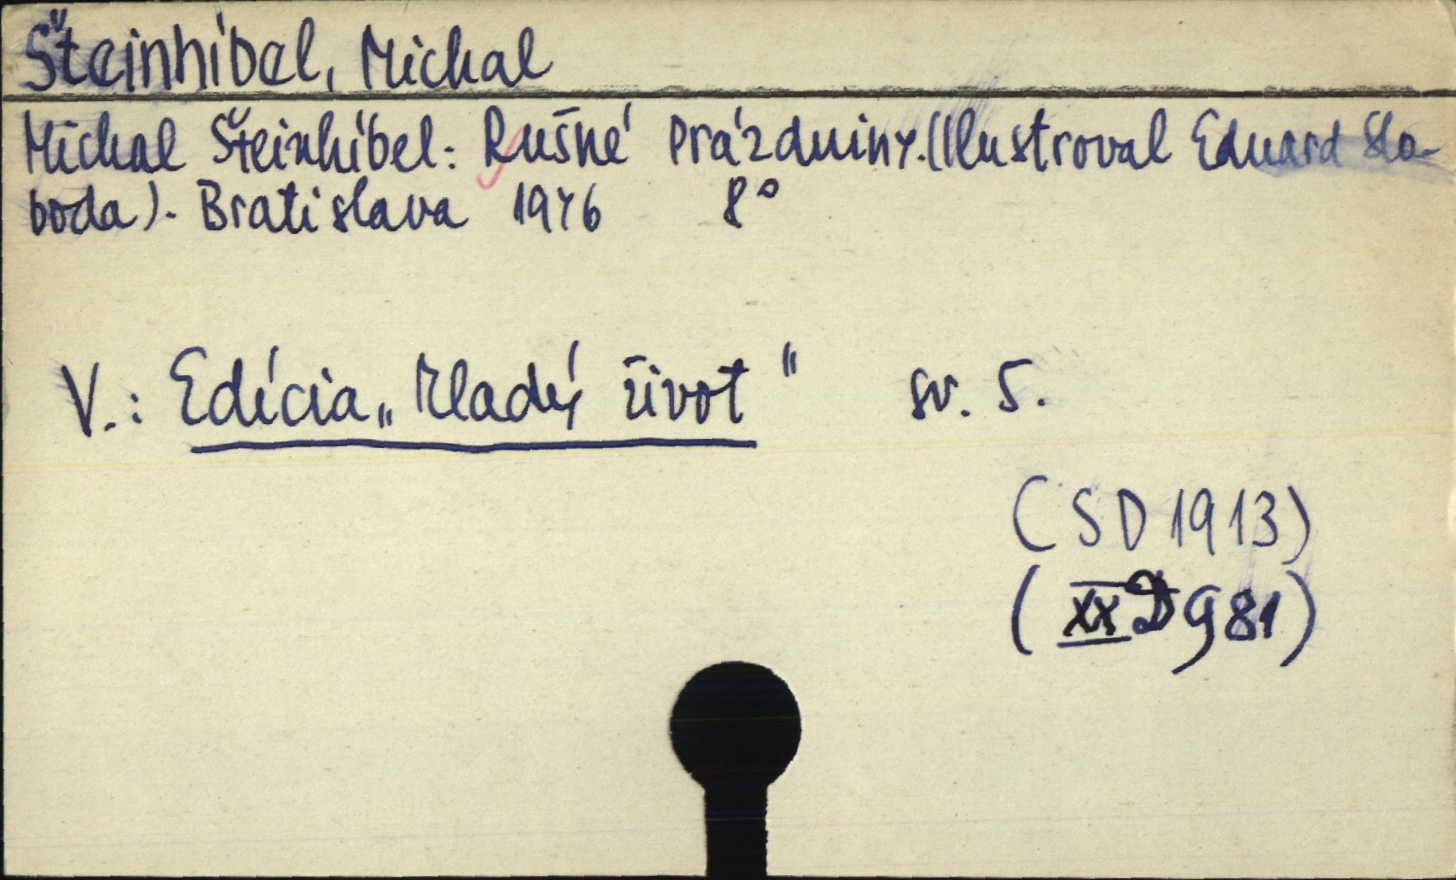 Šteinhíbel, Michal
Michal Šteinhíbel: Rušné prázdniny. (Ilustroval Eduard Slo-
boda). Bratislava 1946 8°
V.: Edícia „Mladý život" sv. 5.
(SD 1913)
(XX D 981)